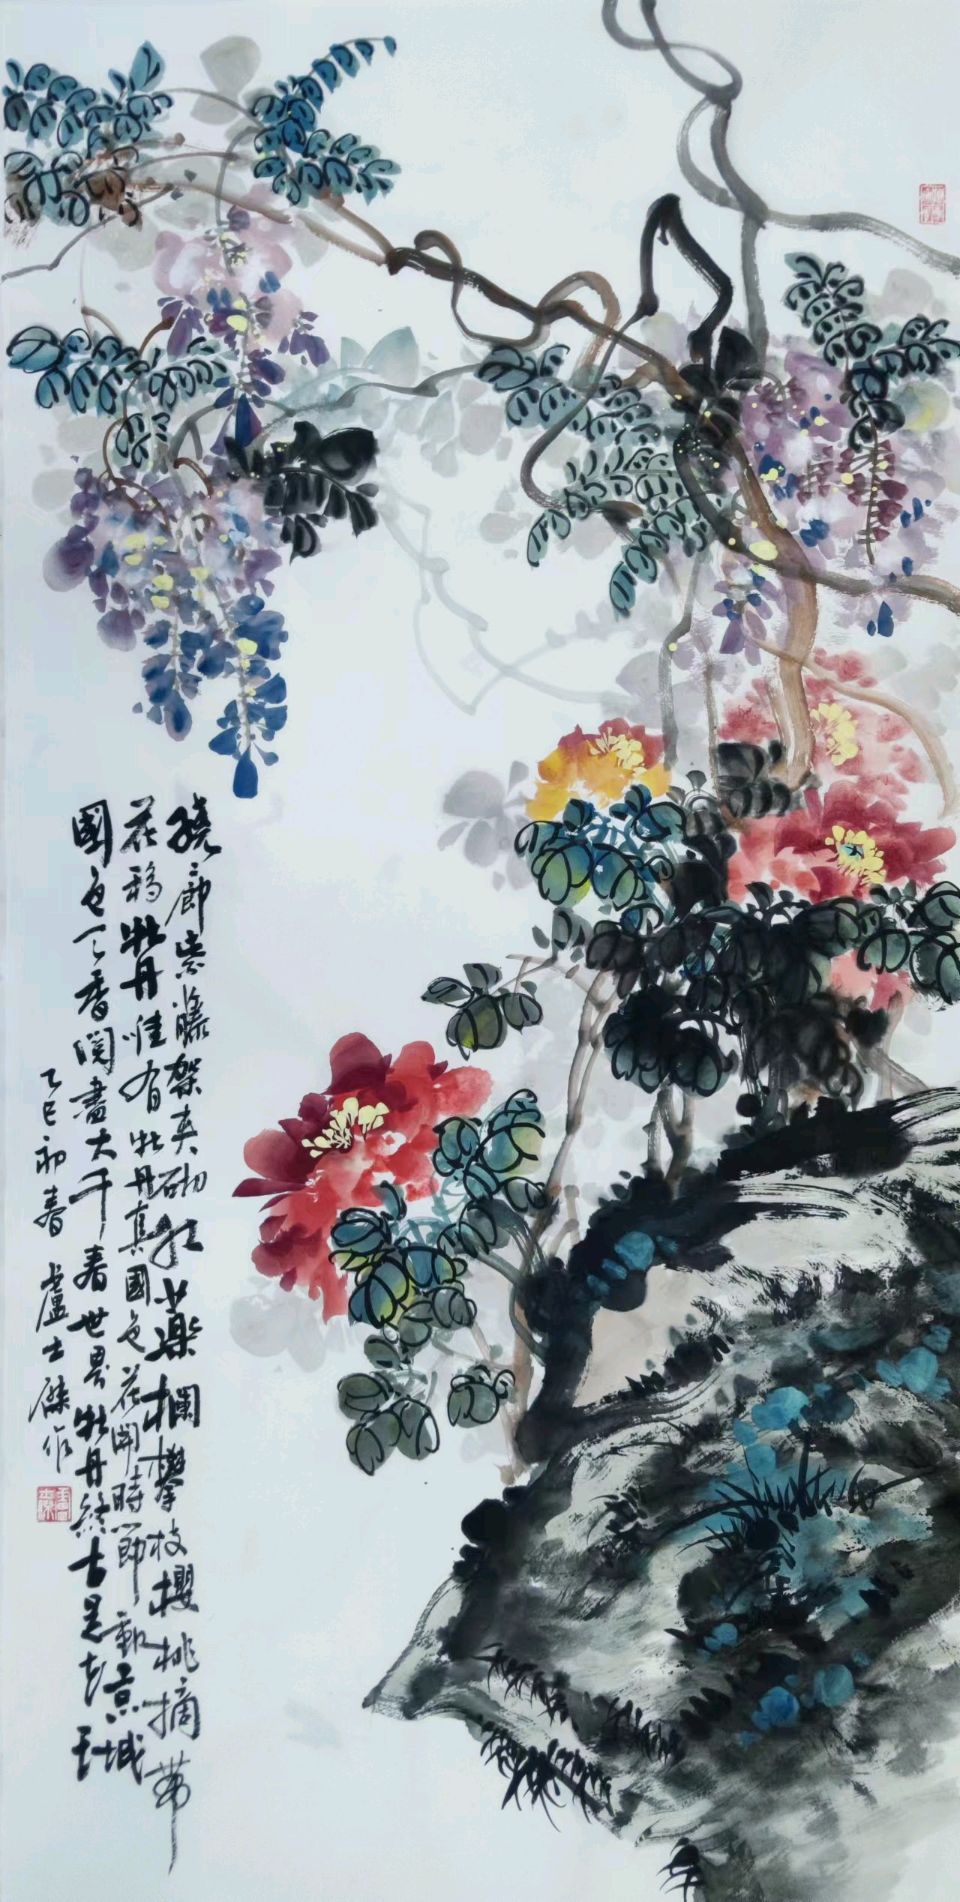 繞廊紫藤架夹砌红藥欄攀枝櫻桃摘带
花移牡丹惟有牡丹真國色花開時節動京城
國色天香閲盡大千春世界牡丹終古是
乙巳初春 盧士傑作